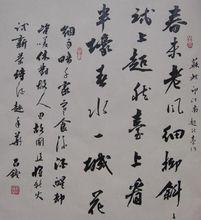 蘇軾 望江南 超然臺作
春未老风细柳斜
試上超然臺上看
半壕春水一城花
烟雨暗千家寒食後酒醒却
咨嗟休對故人思故國且將新火
試新茶詩酒趁年華